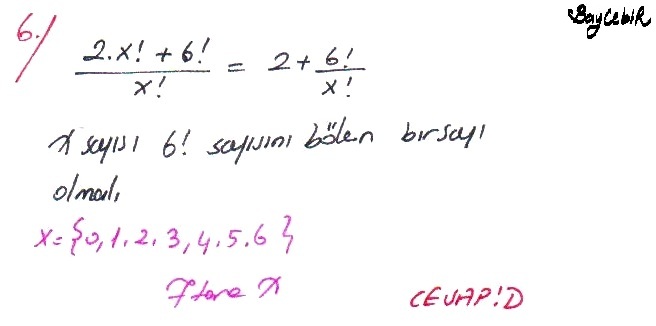 BayCebiR
6./ (2.x! + 6!)/x! = 2 + 6!/x!
x sayısı 6! sayısını bölen bir sayı
olmalı
x = {0, 1. 2. 3, 4. 5. 6}
7 tane x
CEVAP!D